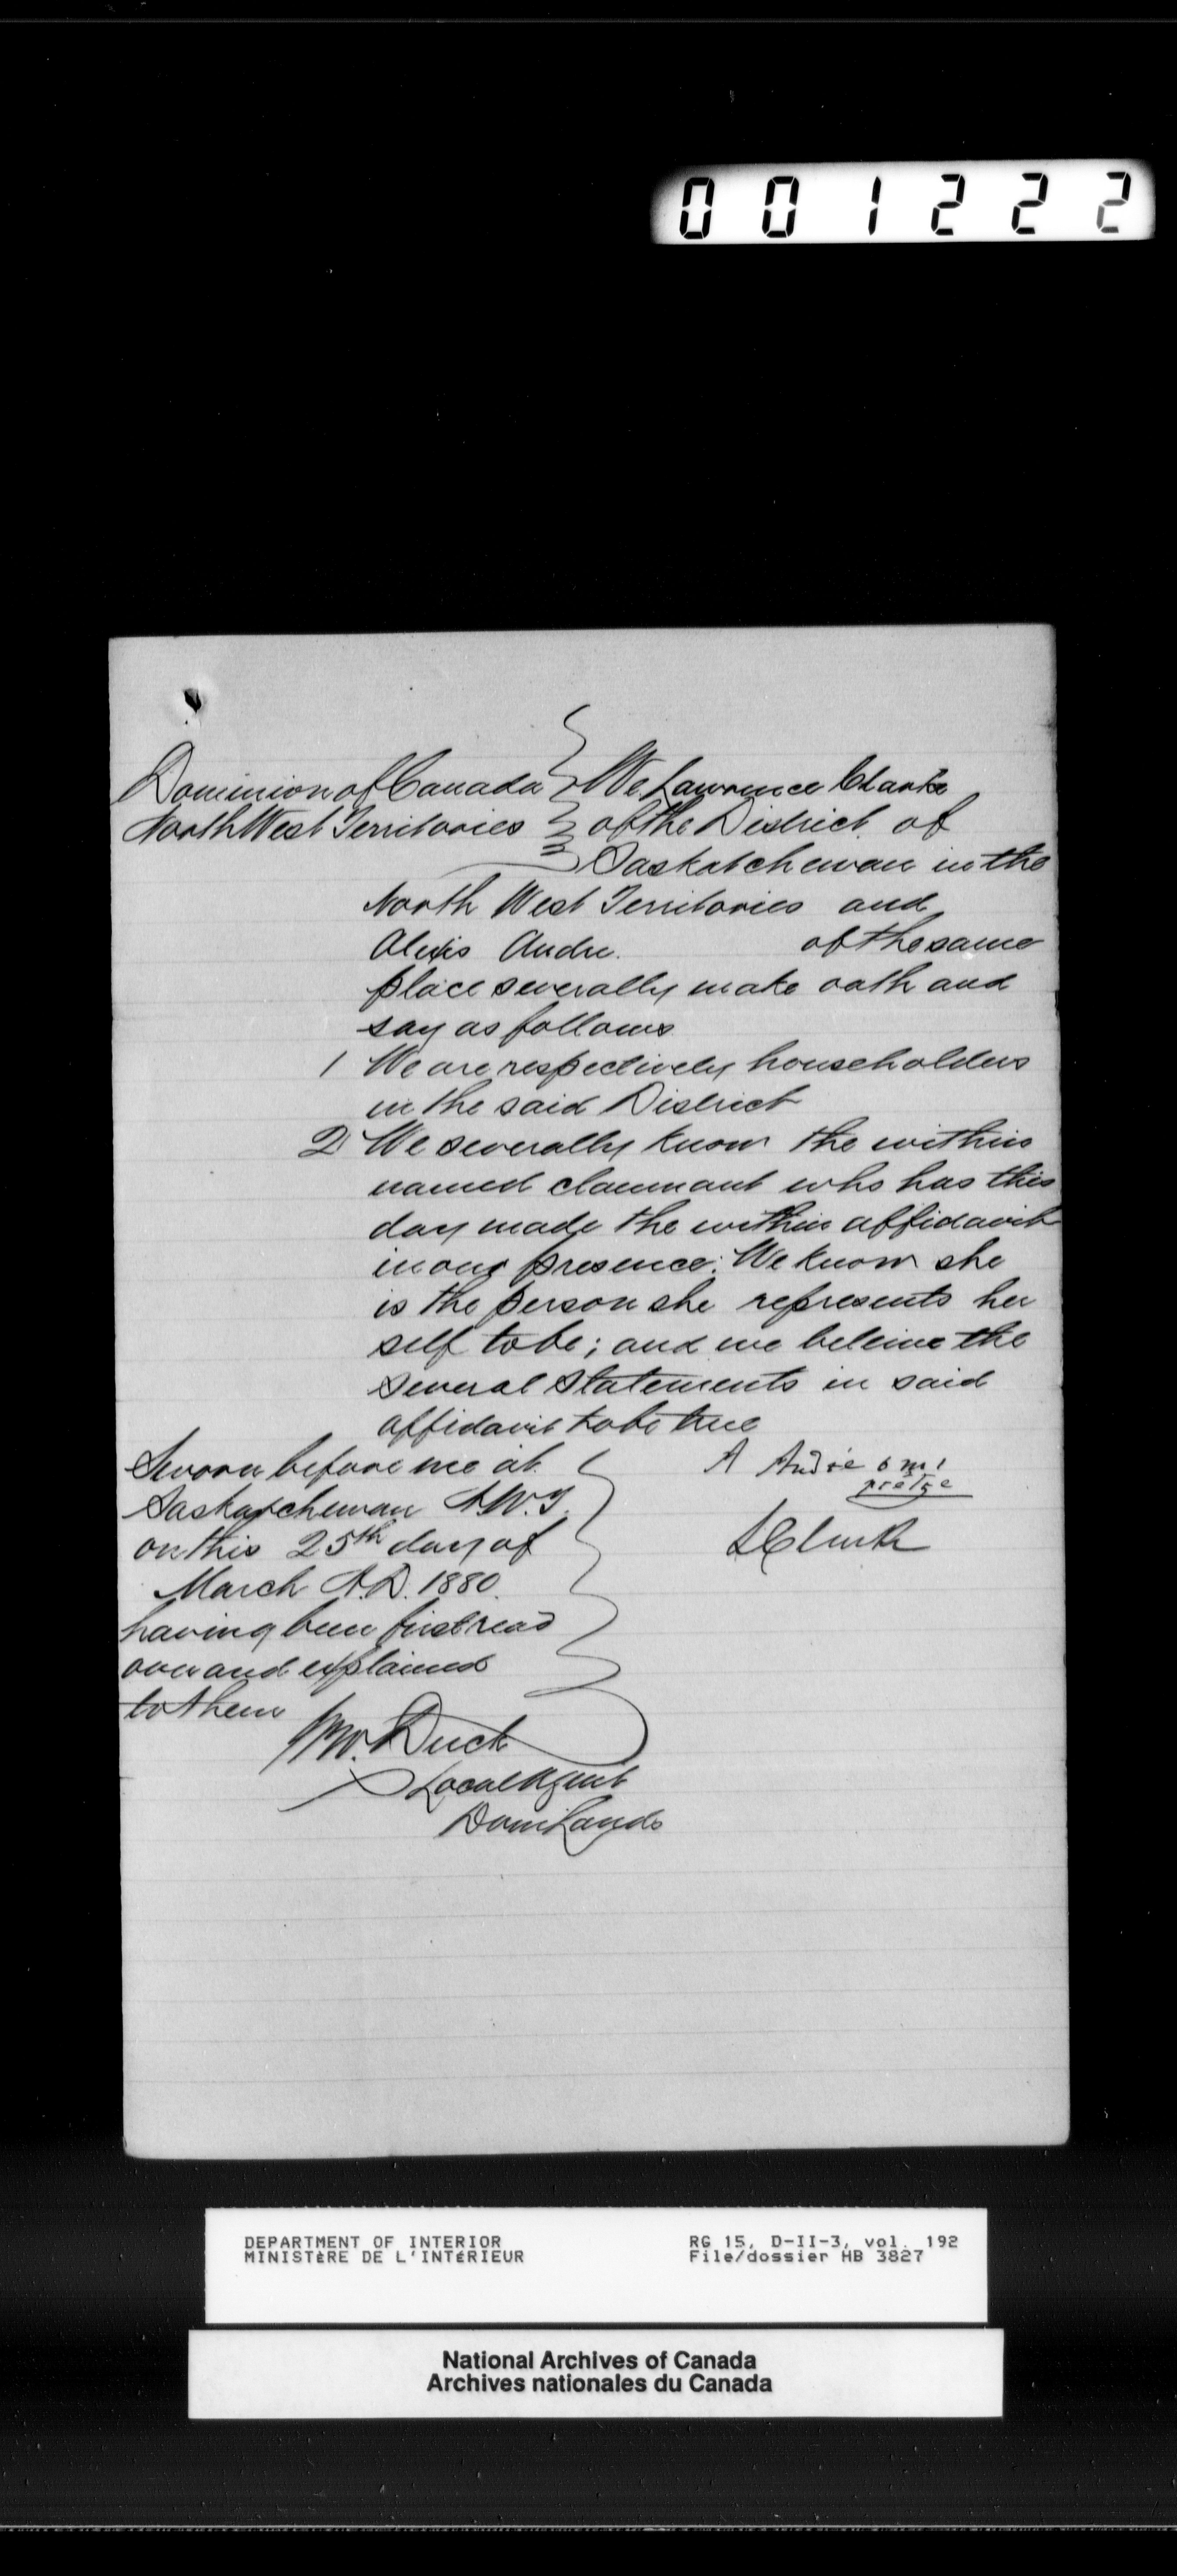 001222
Dominion of Canada } We Lawrence Clarke
North West Territories } of the District of
Saskatchewan in the
North West Territories and
Alexis Andre. of the same
place severally make oath and
say as follows
1 We are respectively householders
in the said District
2 We severally know the within
named claimant who has this
day made the within affidavit
in our presence. We know she
is the person she represents her
self to be; and we beleive the
several statements in said
affidavit to be true
Sworn before me at
Saskatchewan N.W.T.
on this 25th day of
March A.D. 1880.
having been first read
over and explained
to them
A André o m i
prétre
L Clarke
Duck
Local Agent
Dom Lands
DEPARTMENT OF INTERIOR
MINISTÈRE DE L'INTÉRIEUR
RG 15, D-II-3, vol. 192
File/dossier HB 3827
National Archives of Canada
Archives nationales du Canada